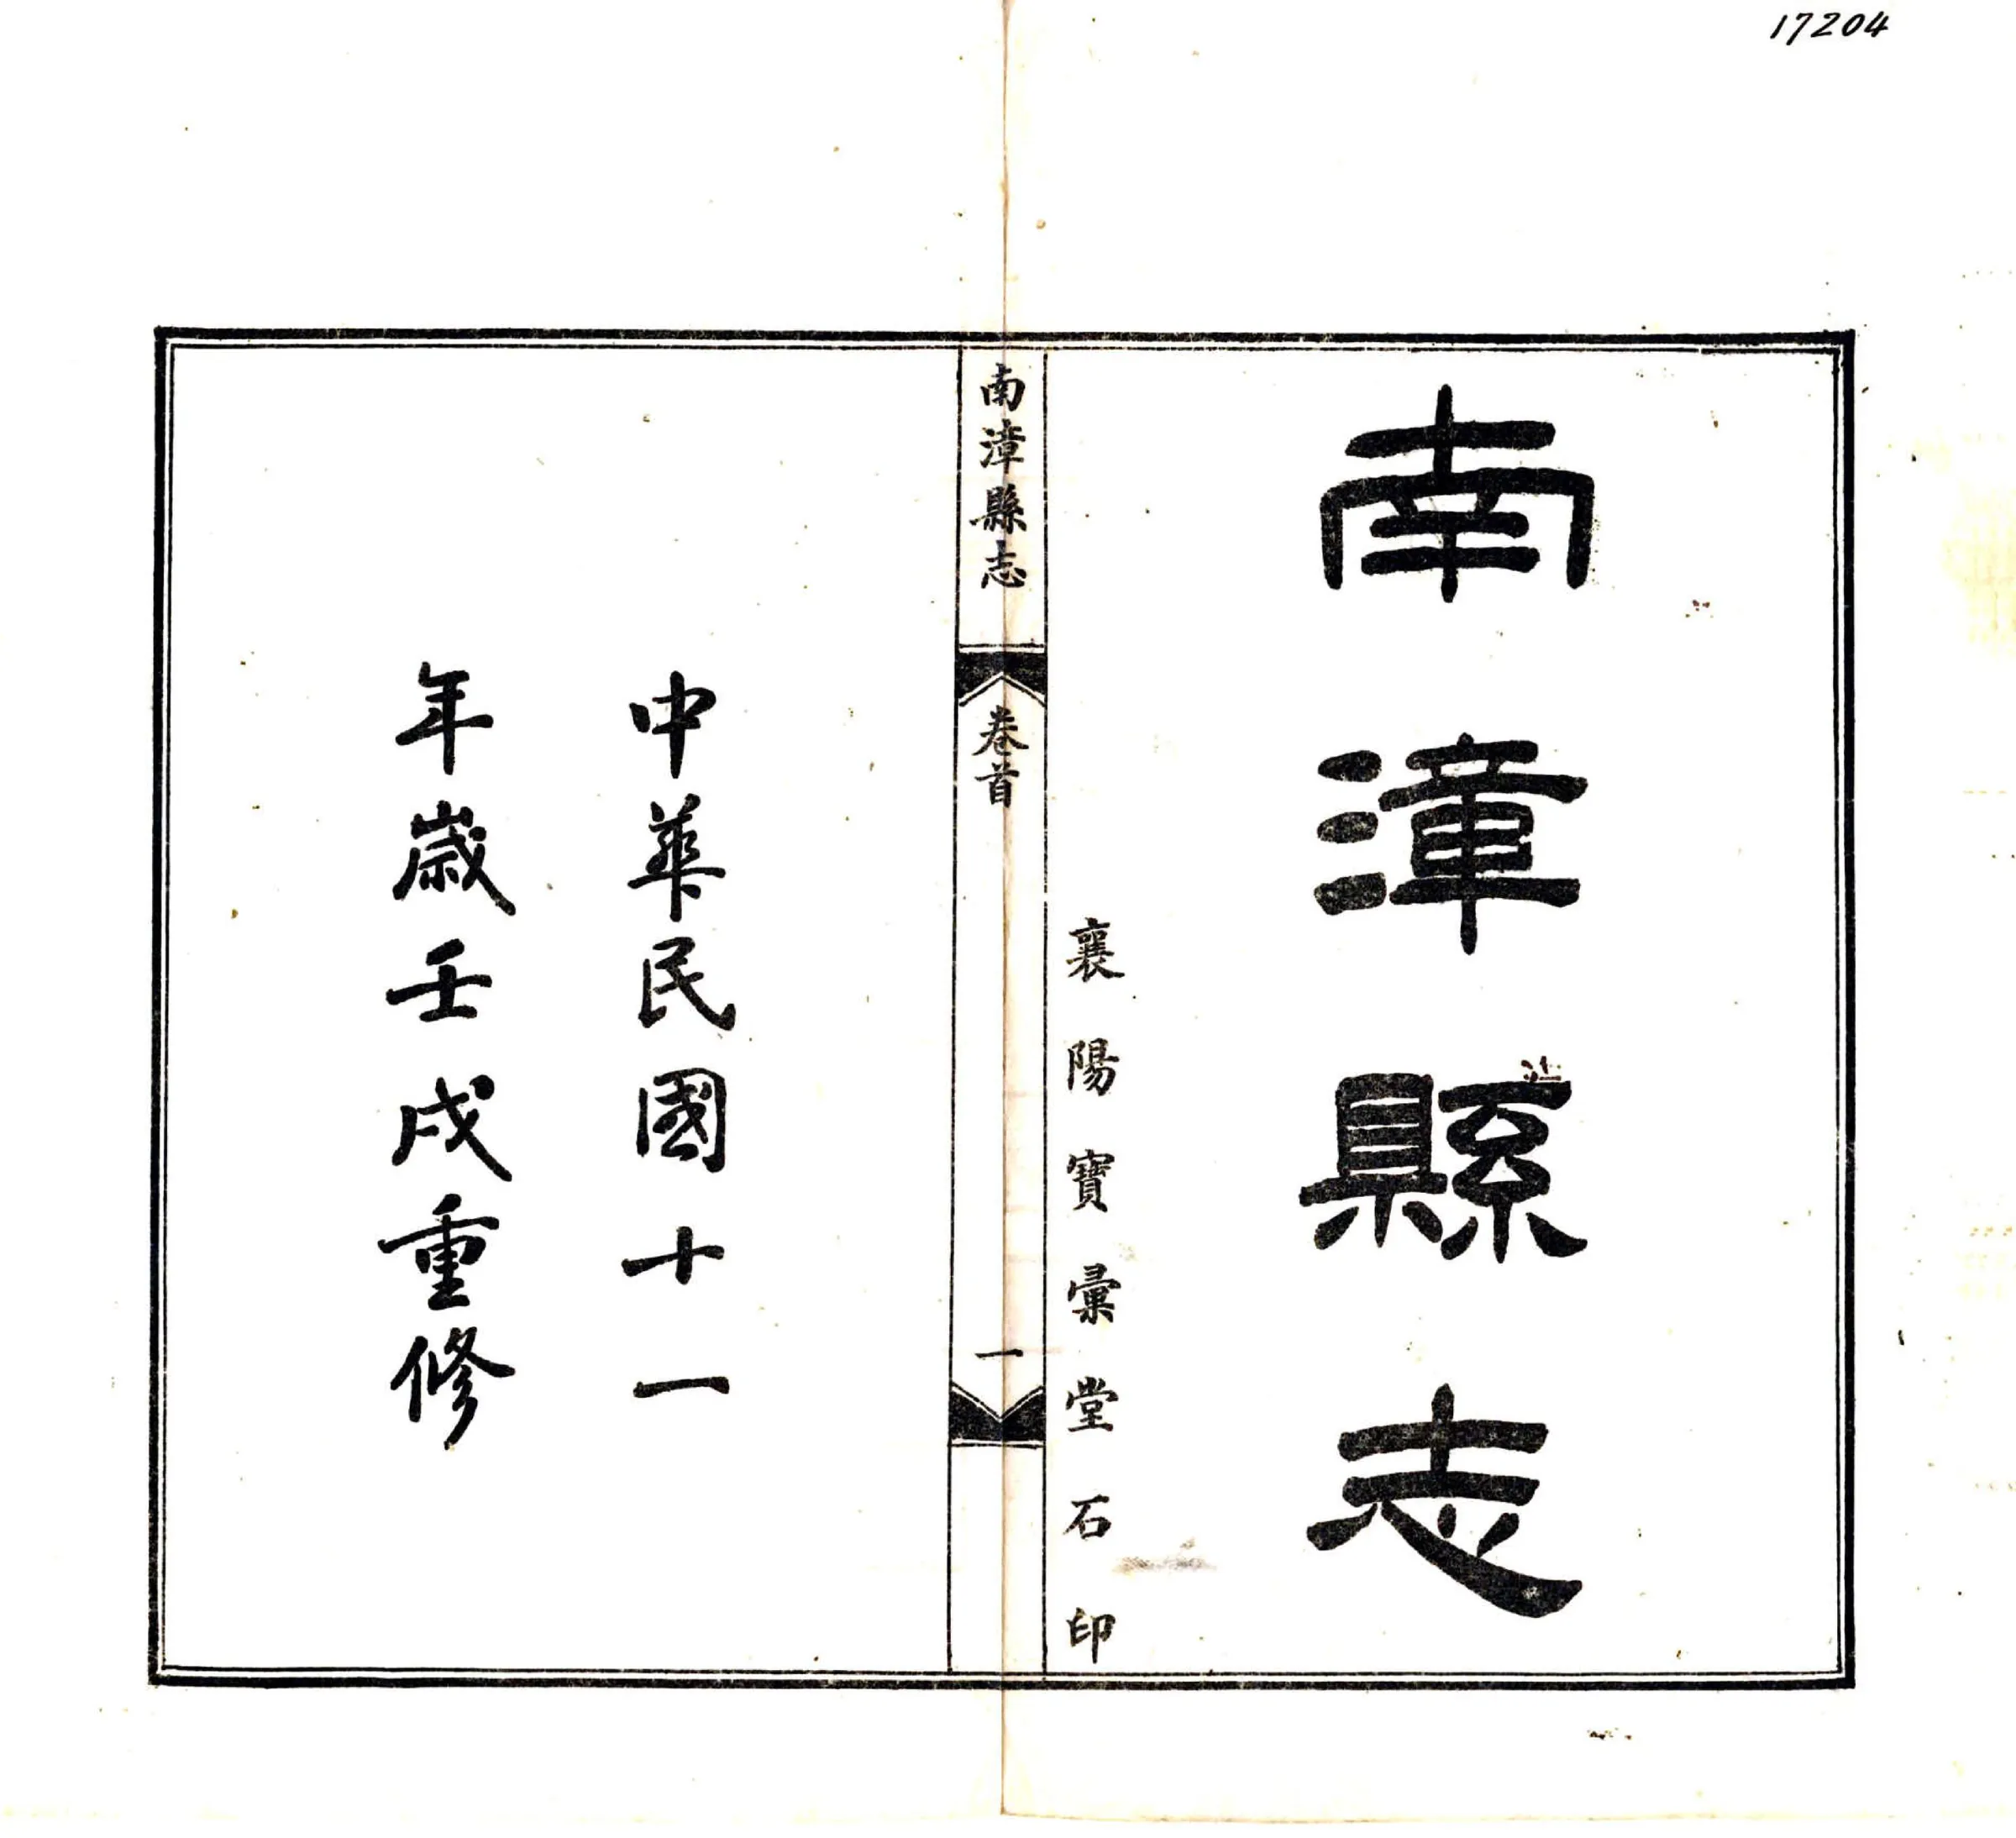 17204
南漳縣志
襄陽寶彙堂石印
南漳縣志 卷首 一
中華民國十一
年歲壬戌重修